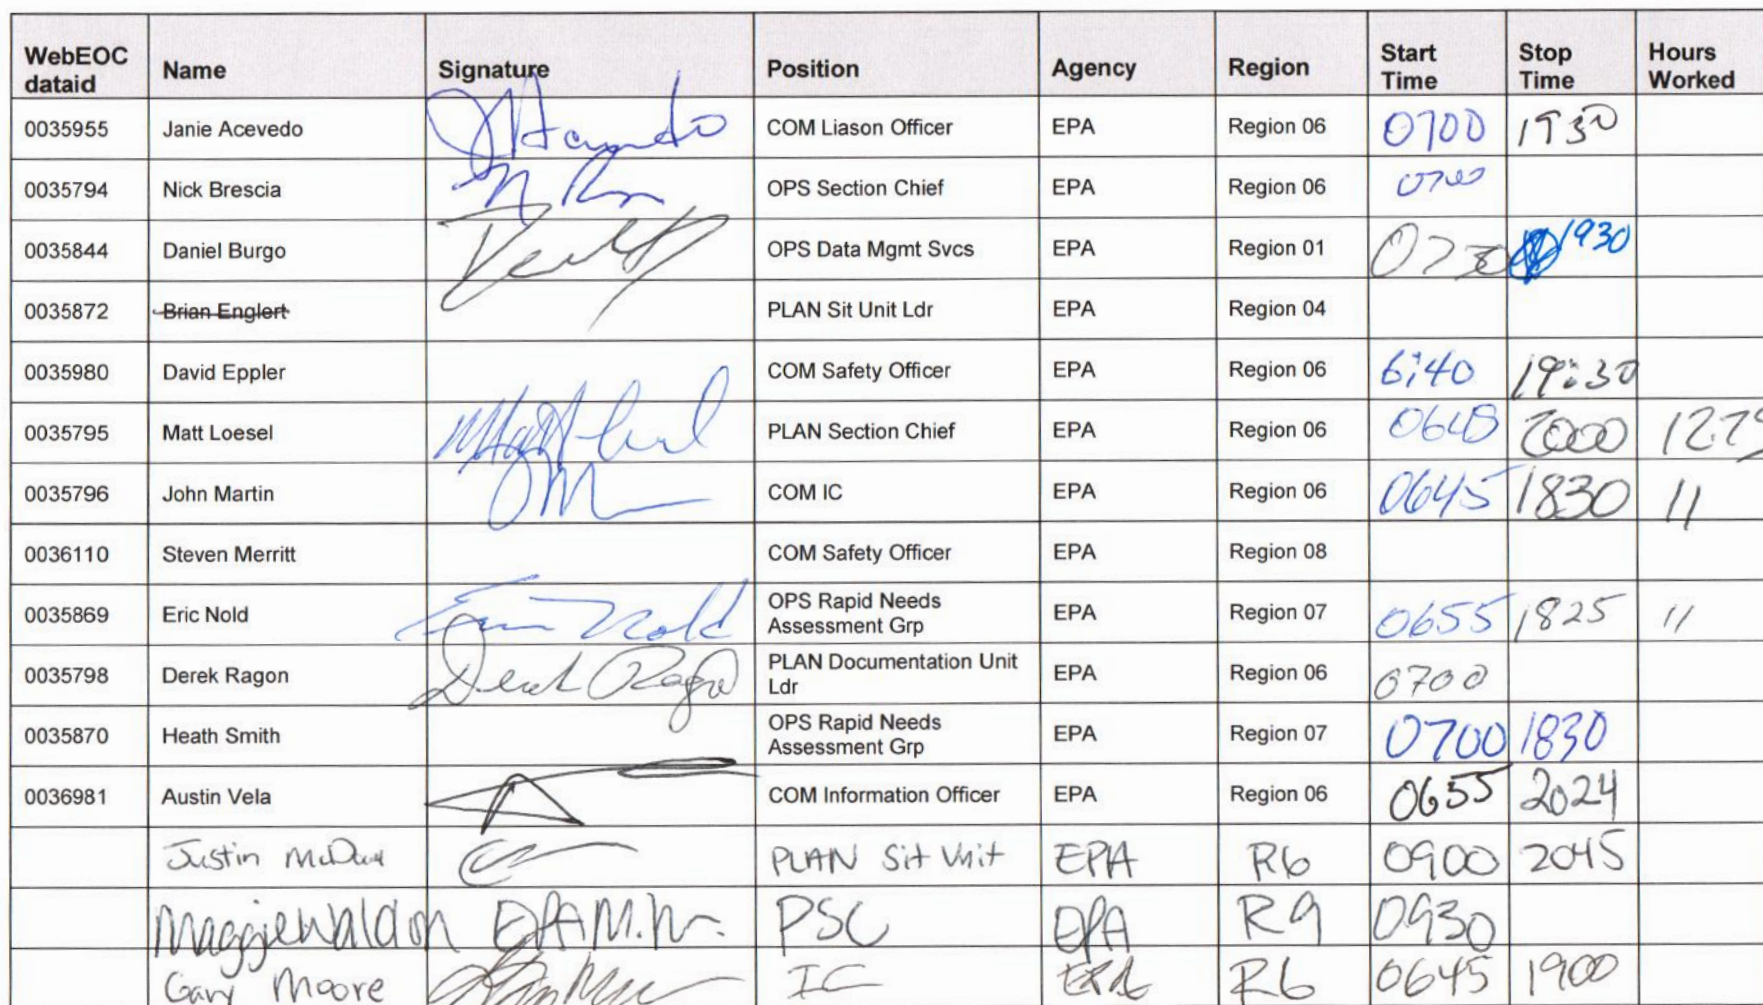 WebEOC dataid Name Signature Position Agency Region Start Time Stop Time Hours Worked
0035955 Janie Acevedo COM Liason Officer EPA Region 06 0700 1930
0035794 Nick Brescia OPS Section Chief EPA Region 06 0700
0035844 Daniel Burgo OPS Data Mgmt Svcs EPA Region 01 0730 1930
0035872 Brian Englert PLAN Sit Unit Ldr EPA Region 04
0035980 David Eppler COM Safety Officer EPA Region 06 6:40 19:30
0035795 Matt Loesel PLAN Section Chief EPA Region 06 2000 12.75
0035796 John Martin COM IC EPA Region 06 0645 1830 11
0036110 Steven Merritt COM Safety Officer EPA Region 08
0035869 Eric Nold Eric Nold OPS Rapid Needs Assessment Grp EPA Region 07 0655 1825 11
0035798 Derek Ragon Derek Ragon PLAN Documentation Unit Ldr EPA Region 06 0700
0035870 Heath Smith OPS Rapid Needs Assessment Grp EPA Region 07 0700 1830
0036981 Austin Vela COM Information Officer EPA Region 06 0655 2024
Justin PLAN Sit Unit EPA R6 0900 2045
Maggie Waldon EPA M.W. PSC EPA R9 0930
Gary Moore IC EPA R6 0645 1900